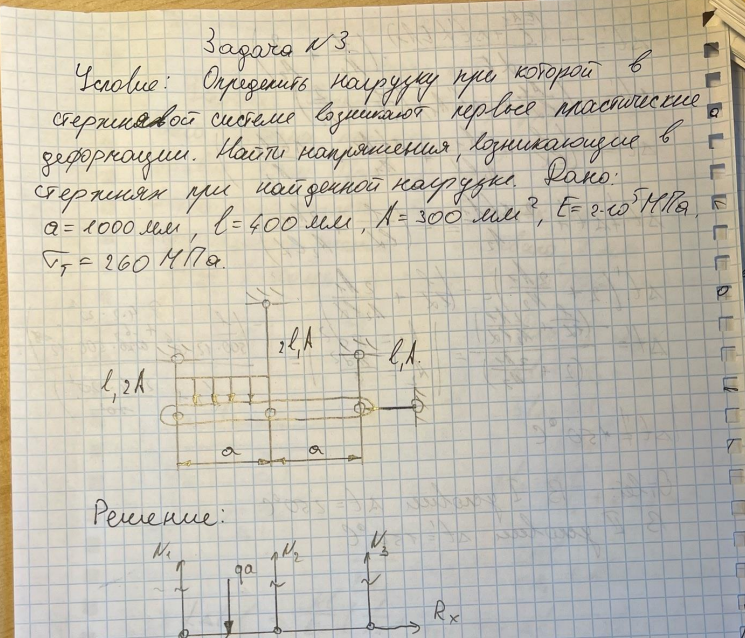 Задача №3.
Условие: Определить нагрузку при которой в
стержневой системе возникают первые пластические
деформации. Найти напряжения, возникающие в
стержнях при найденной нагрузке. Дано:
a = 1000 мм, l = 400 мм, A = 300 мм², E = 2·10⁵ МПа,
σт = 260 МПа.
2l, A
l, A.
l, 2A
a a
Решение:
N₁ qa N₂ N₃
Rx